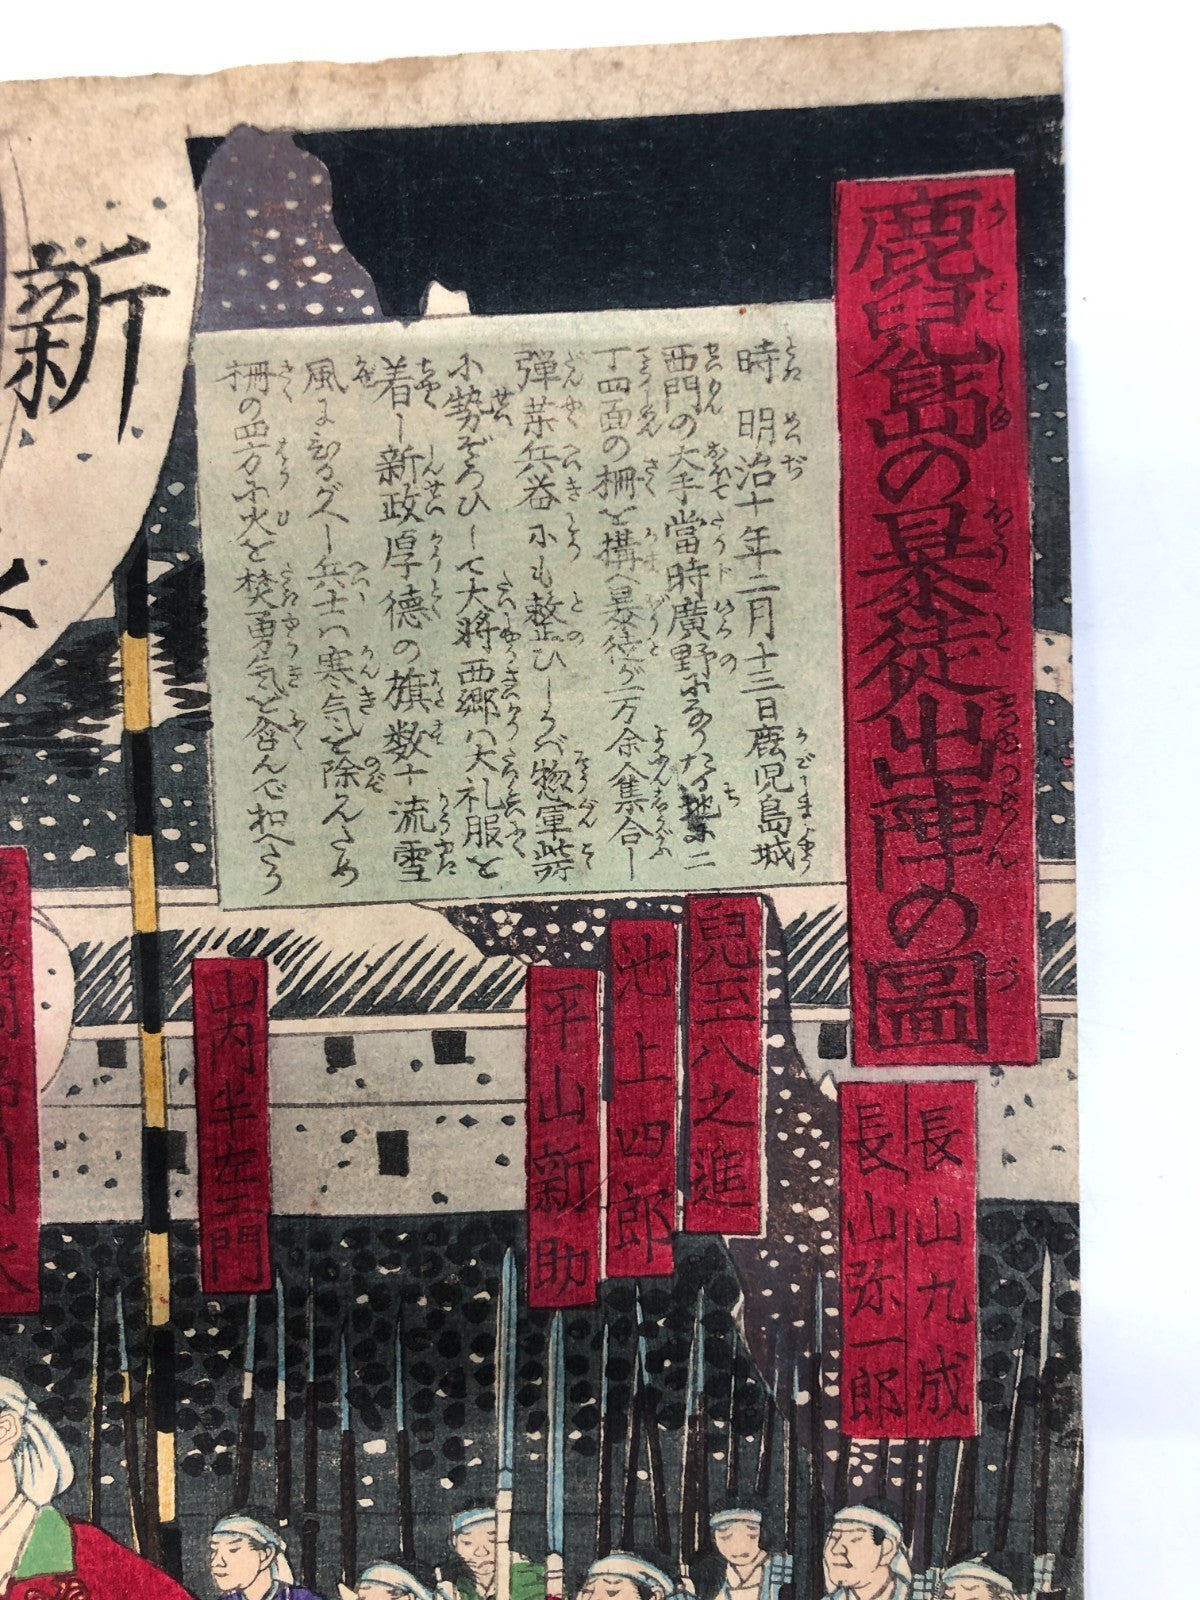 鹿児島の暴徒出陣の圖
時 明治十年二月十三日鹿児島城
西門の大手當時廣野になりたる地に二
丁四面の柵を構へ暴徒が一万余集合し
弾薬兵器にも整ひしかバ惣軍勢
に勢ぞろひして大將西郷ハ大礼服を
着し新政厚德の旗数十流雪
風にひるがへし兵士ハ寒気を除んため
柵の四方に火を焚勇気を含んで扣へたり
長山九成
長山弥一郎
兒玉八之進
池上四郎
平山新助
山内半左エ門
新